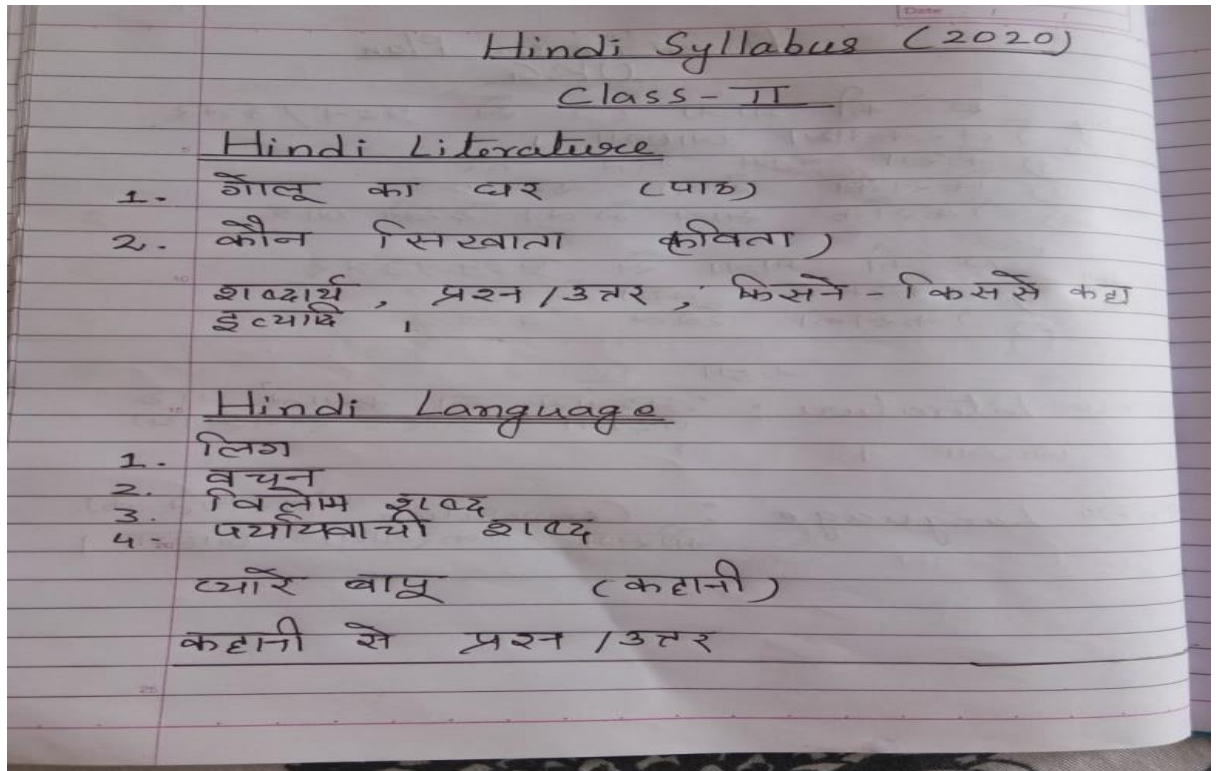 Date / /
Hindi Syllabus (2020)
Class - II
Hindi Literature
1. गोलू का घर (पाठ)
2. कौन सिखाता (कविता)
शब्दार्थ, प्रश्न / उत्तर, किसने - किससे कहा
इत्यादि ।
Hindi Language
1. लिंग
2. वचन
3. विलोम शब्द
4. पर्यायवाची शब्द
प्यारे बापू (कहानी)
कहानी से प्रश्न / उत्तर